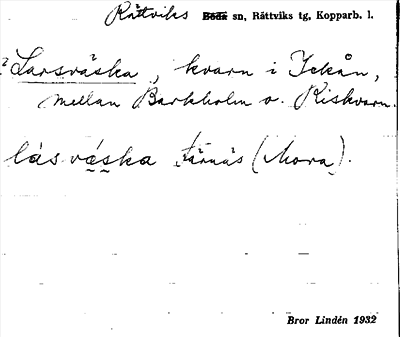 Rättviks Boda sn, Rättviks tg, Kopparb. l.
? Larsväska, kvarn i Ickån,
mellan Barkholm o. Riskvarn.
lásvä́ska färnäs (Mora).
Bror Lindén 1932